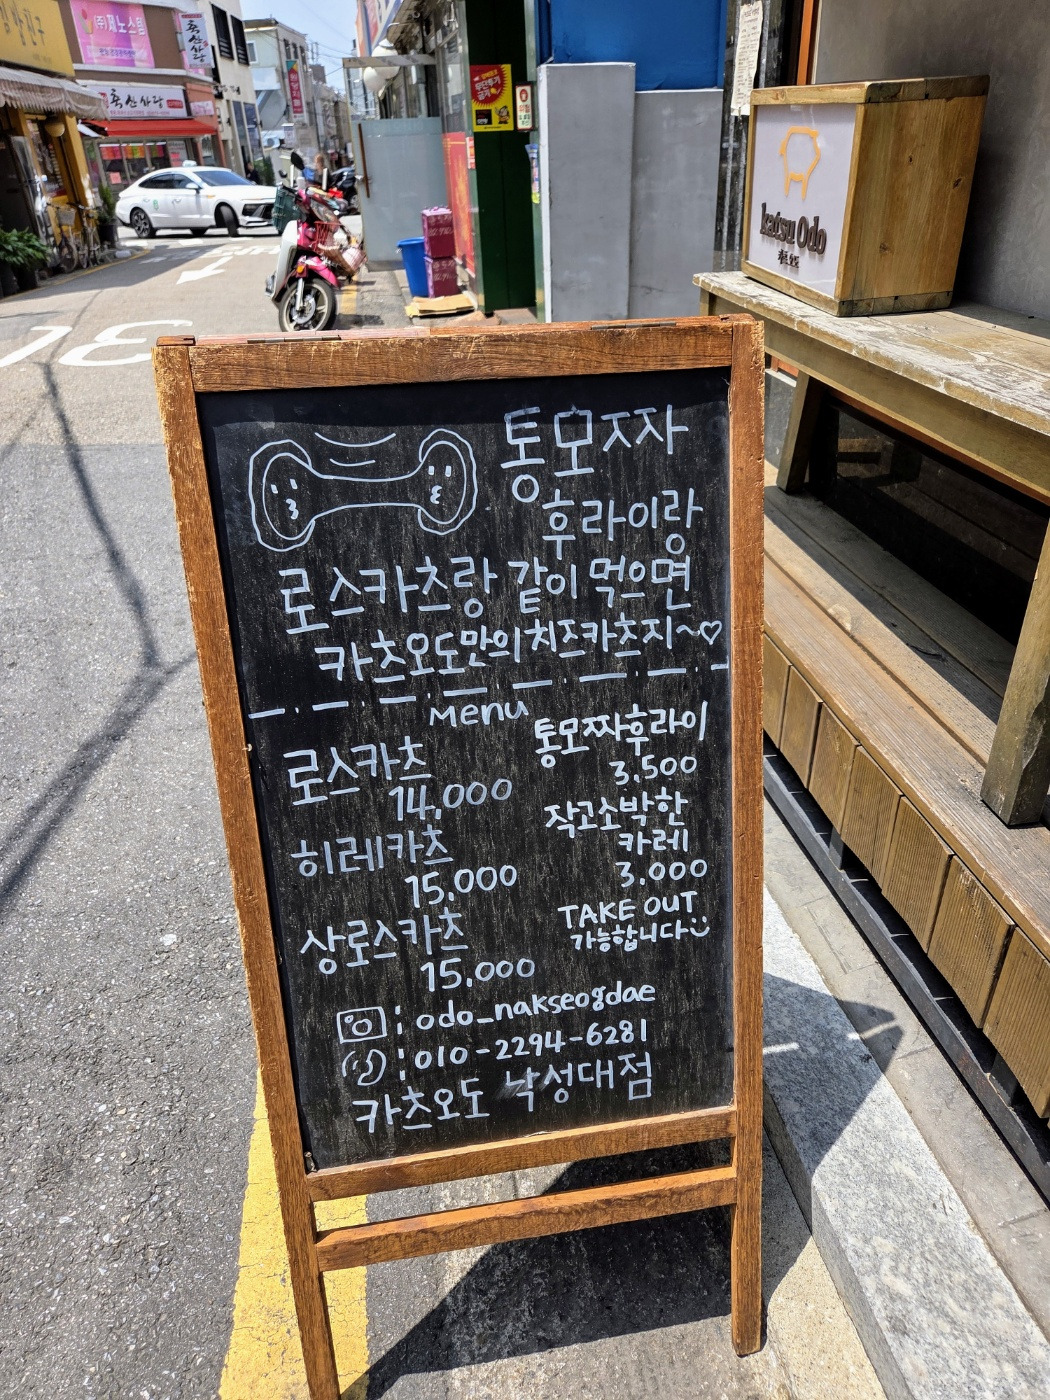 축산식당
katsu Odo
카츠 오도
통모짜
후라이랑
로스카츠랑 같이 먹으면
카츠오도만의 치즈카츠지~♡
Menu
로스카츠
14,000
히레카츠
15,000
상로스카츠
15,000
통모짜후라이
3,500
작고소박한
카레
3,000
TAKE OUT
가능합니다
: odo_nakseogdae
: 010-2294-6281
카츠오도 낙성대점